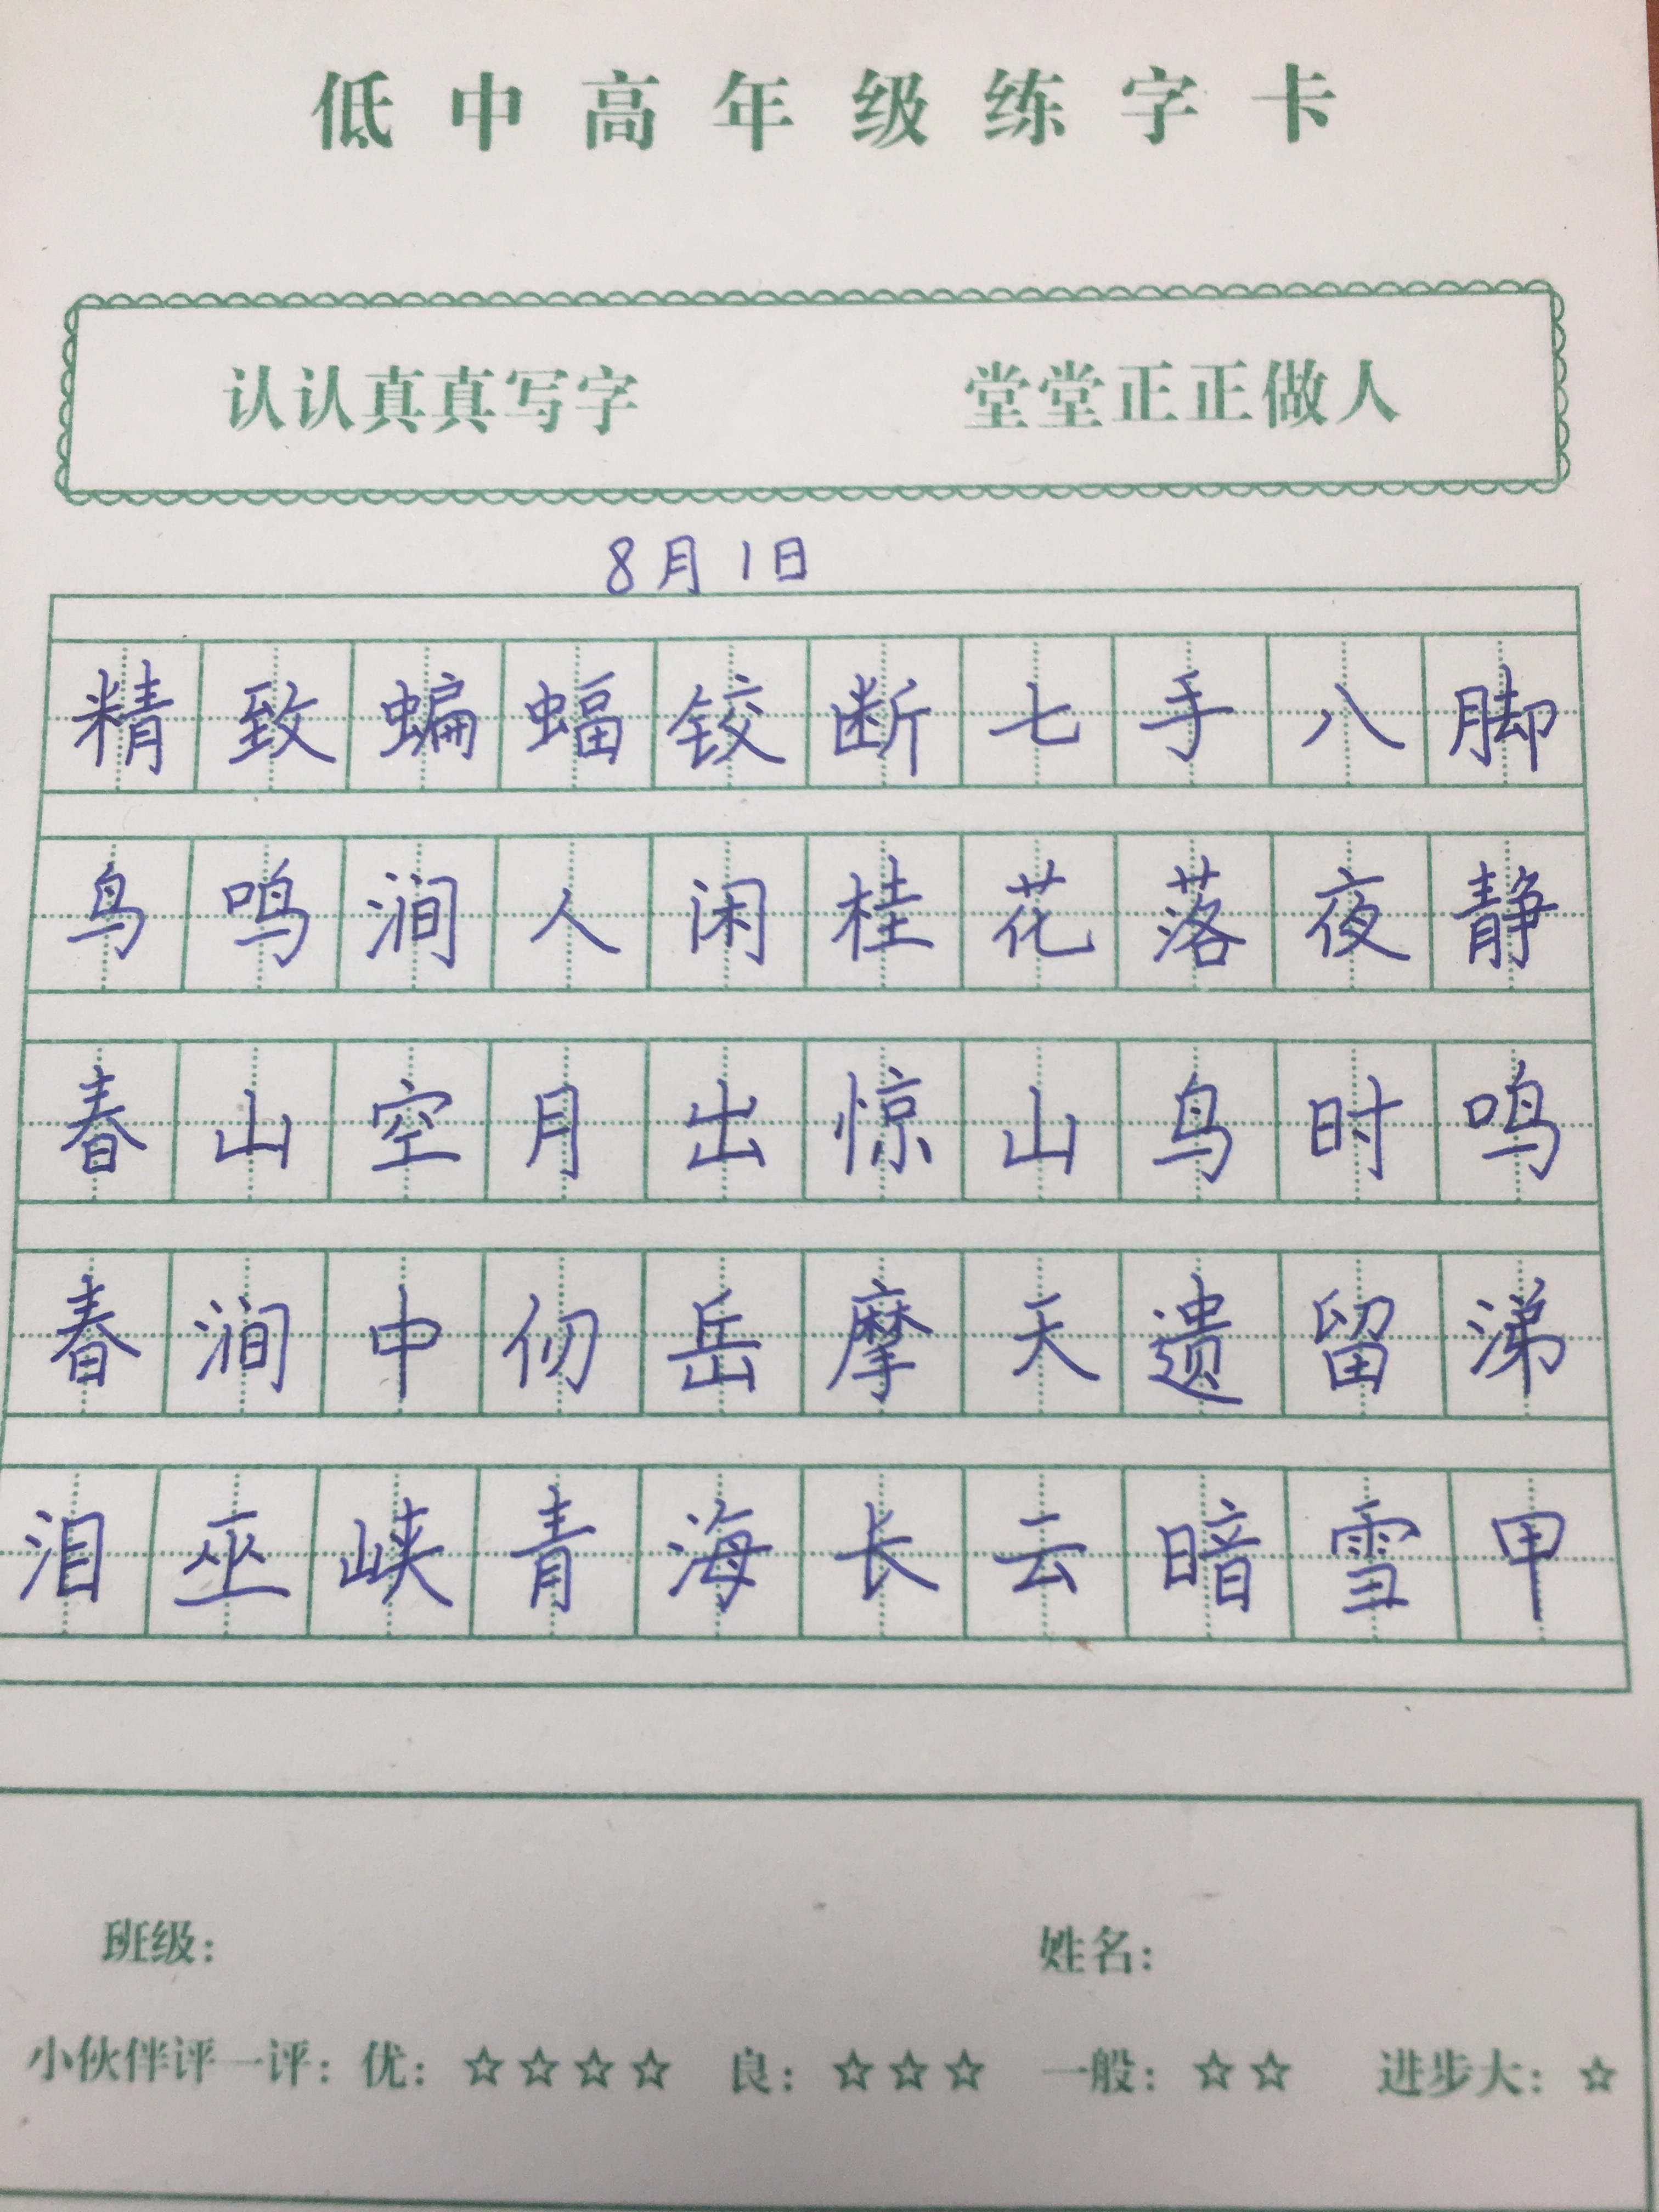 低中高年级练字卡
认认真真写字 堂堂正正做人
8月1日
精致蝙蝠铰断七手八脚
鸟鸣涧人闲桂花落夜静
春山空月出惊山鸟时鸣
春涧中仞岳摩天遗留涕
泪巫峡青海长云暗雪甲
班级: 姓名:
小伙伴评一评: 优: ☆☆☆☆ 良: ☆☆☆ 一般: ☆☆ 进步大: ☆